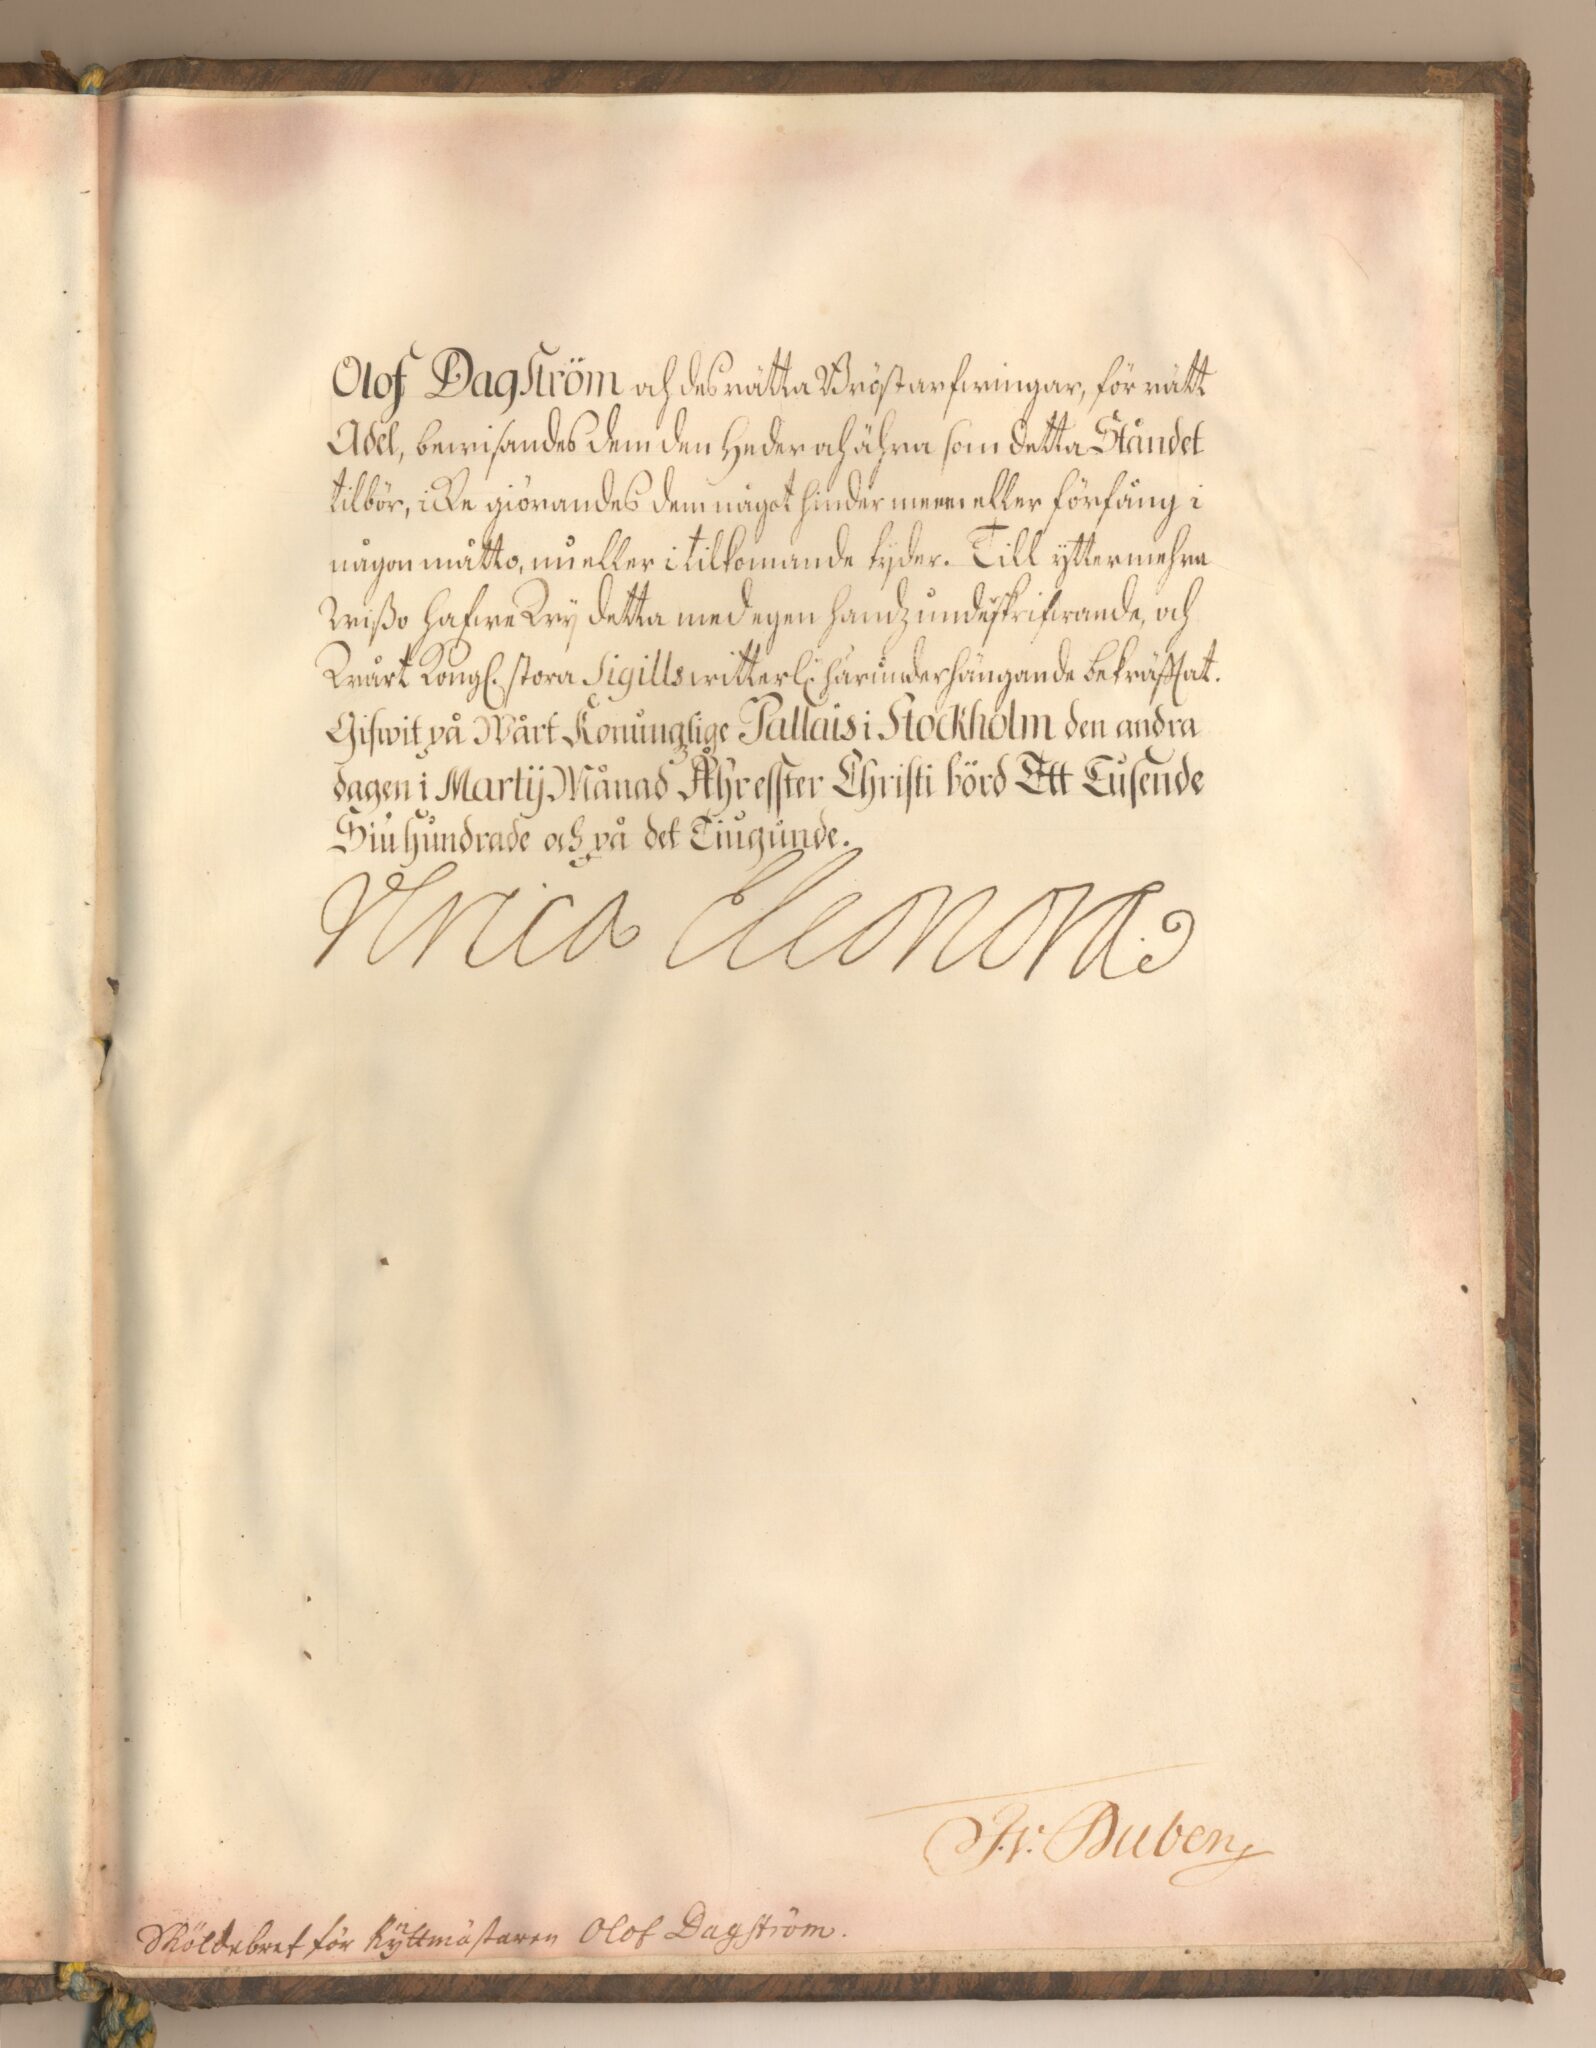 Olof Dagström och des rätta Bröstarfwingar, för rätt
Adel, bewisandes dem den Heder och ähra som detta Ståndet
tilbör, icke giörandes dem något hinder meen eller förfång i
någon måtto, nu eller i tilkomande tyder. Till yttermehra
Wißo hafwe Wy detta med egen handz underskrifwande, och
Wårt Kongl. stora Sigills witterl: härunderhängande bekräfftat.
Gifwit på Wårt Konunglige Pallais i Stockholm den andra
dagen i Martij Månad Åhr effter Christi börd Ett Tusende
Siuhundrade och på det Tiugunde.
Vlrica Eleonora
Fr: Duben
Sköldebref för Ryttmästaren Olof Dagström.